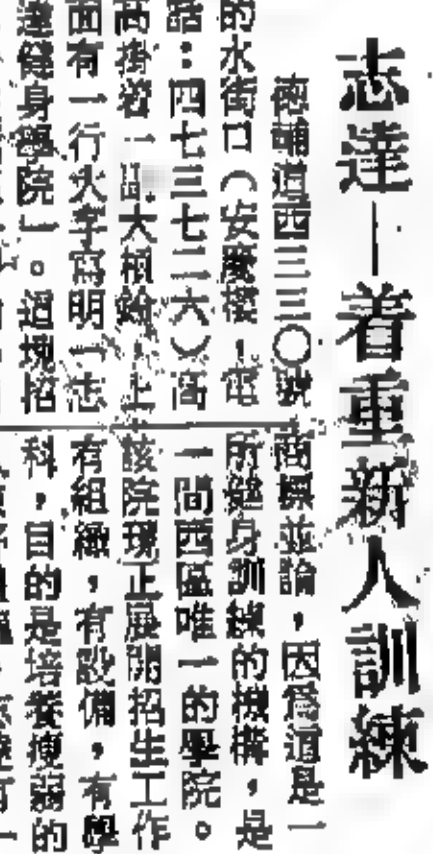 志達—着重新人訓練
德輔道西三三〇號
的水街口（安慶樓，電
話：四七三七二六）高
高掛着一
大
，上
面有一行大字寫明「志
達健身學院」。這塊招
商標並論，因爲這是一
所健身訓練的機構，是
一間西區唯一的學院。
該院現正展開招生工作
有組織，有設備，有學
科，目的是培養瘦弱的